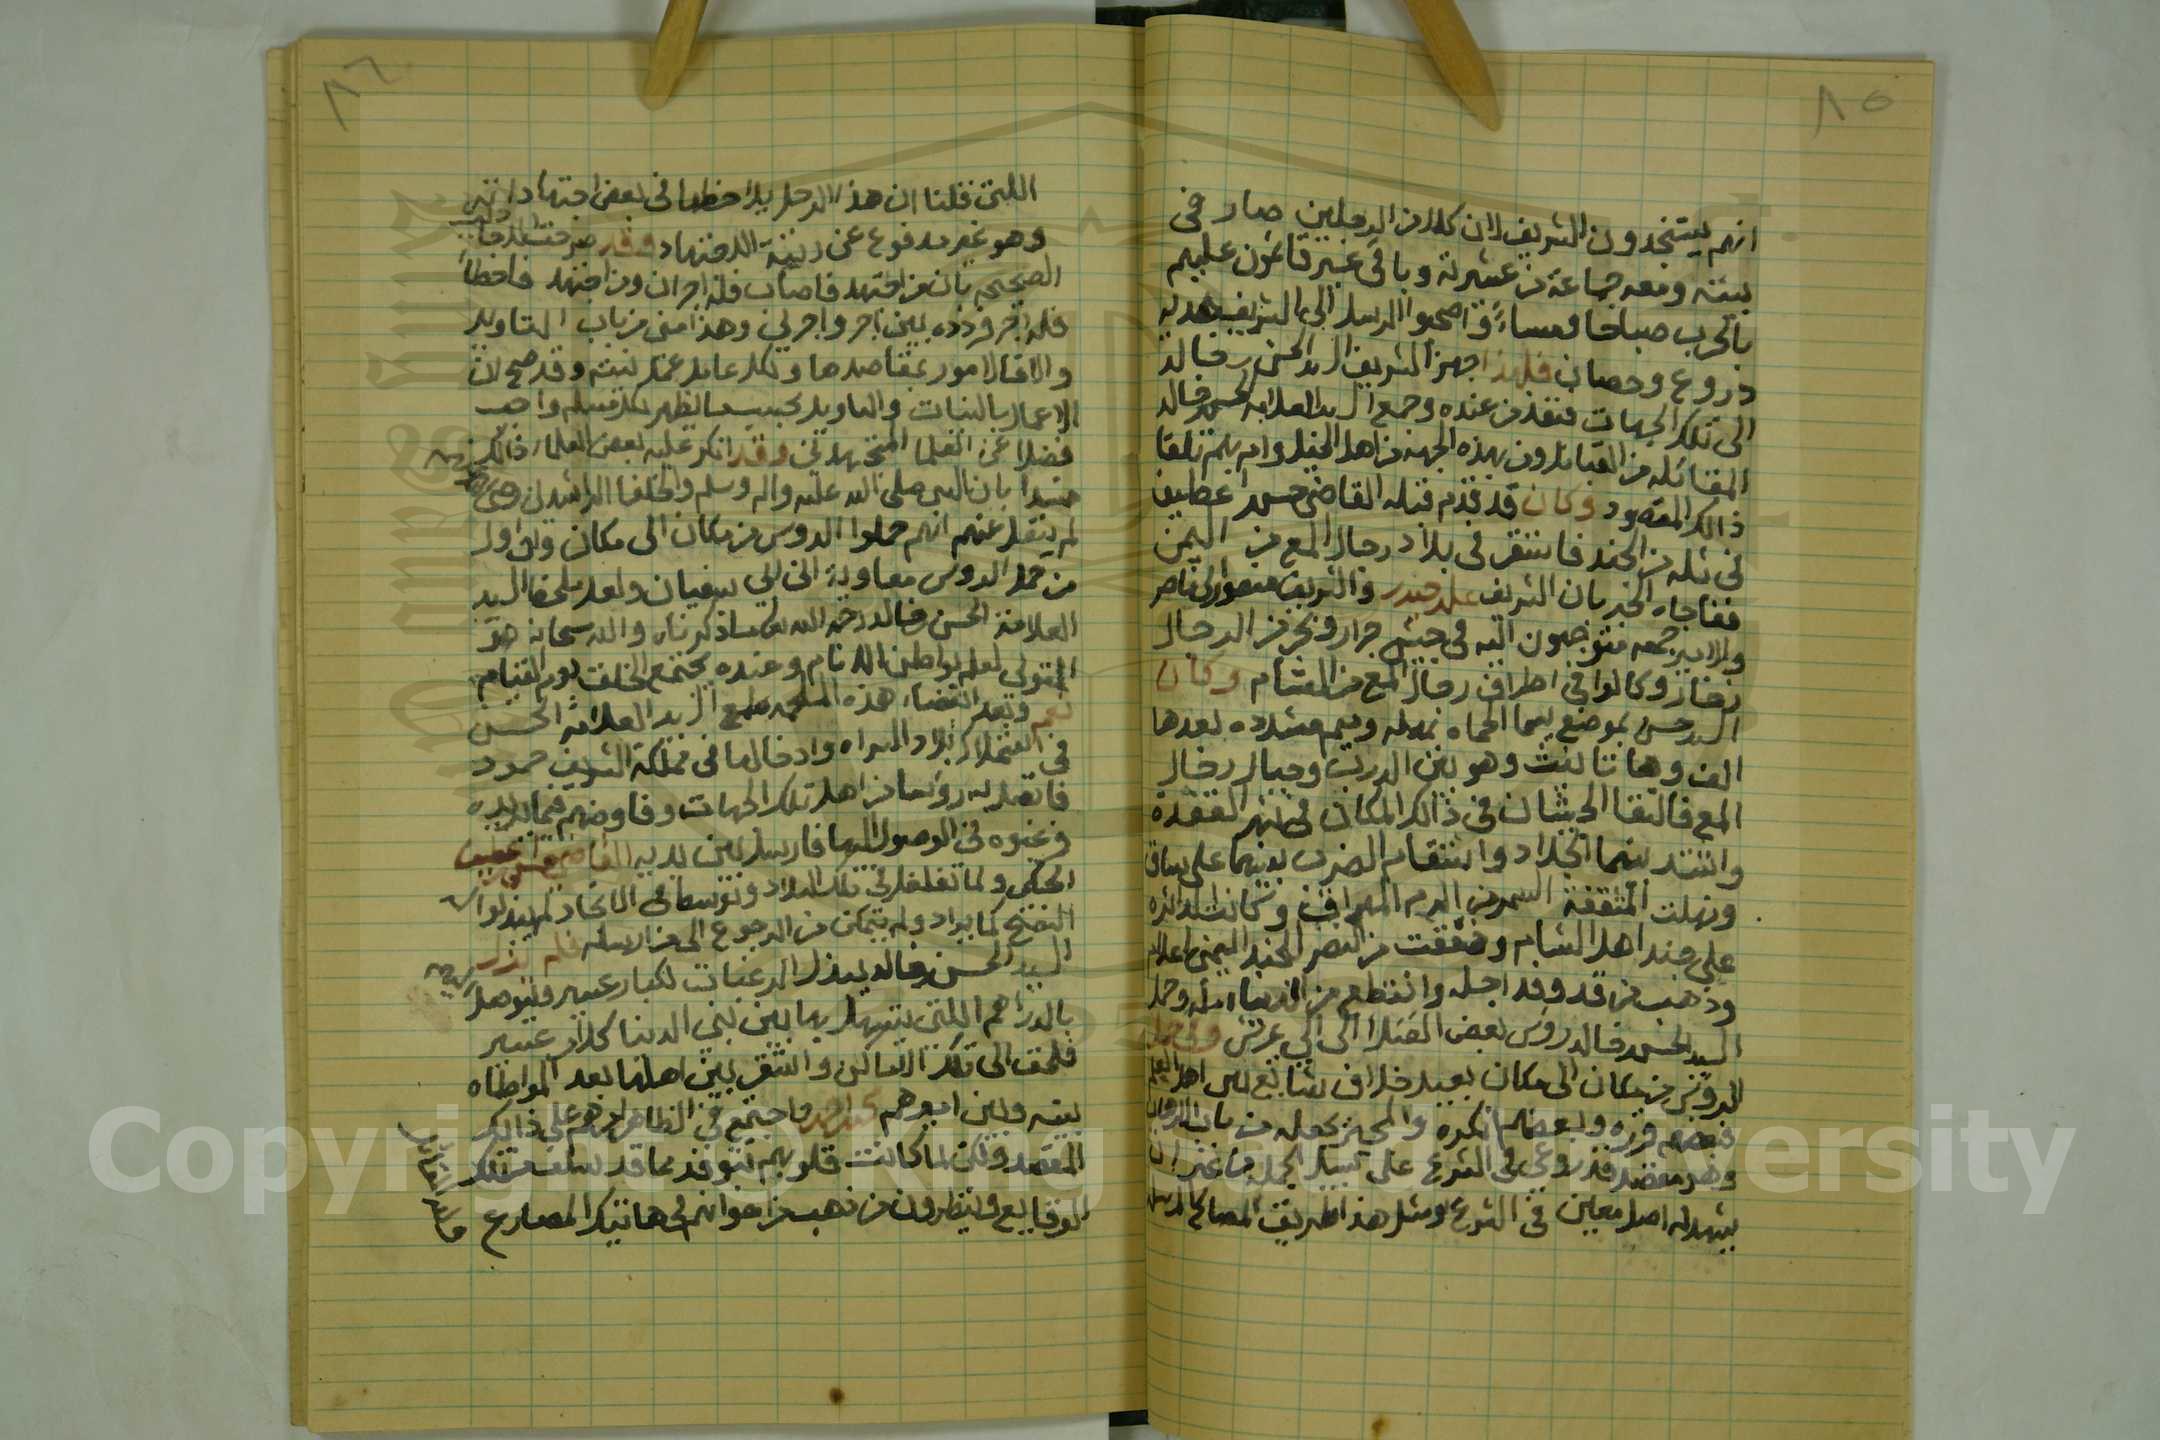 ٨٥
انهم يستنجدون الشريف لان كلا من الرجلين صار في
بيته ومعه جماعة من عشيرته وباقي عسير قائمون عليهم
بالحرب صباحا ومساءً واصحبوا الرسل الى الشريف هدية
دروع وحصان فلهذا جهز الشريف السيد الحسن بن خالد
الى تلك الجهات فنفذ من عنده وجمع السيد العلامه الحسن خالد
المقاتله من القبايل ومن بهذه الجهه من اهل الخيل وام بهم تلقا
ذالك المقصود وكان قد تقدم قبله القاضي حسن عطيف
في ثله من الجند فاستقر في بلاد رجال المع من اليمن
ففاجاه الخبر بان الشريف علي حيدر والشريف منصور بن ناصر
والامير جمعه متوجهون اليه في جيش جرار ونحو من الرجال
وكانوا في اطراف رجال المع من الشام وكان
السيد حسن بموضع يسما الحماه بمهمله وميم مشدده بعدها
الف وها تانيث وهو بين الدرب وجبال رجال
المع فالتقا الجيشان في ذالك المكان في شهر القعدة
واشتد بينهما الجلاد واستقام الضرب بينهما على ساق
ونهلت المثقفة السمر من الدم المهراق وكانت الدائره
على جند اهل الشام وخفقت من النصر للجند اليمني اعلام
وذهب من قد وفد اجله وانقطع من الدنيا امله وحمل
السيد الحسن خالد روس بعض القتلا الى ابي عريش وفي حمل
الروس من مكان الى مكان بعيد خلاف شايع بين اهل العلم
فبعضهم قرره وبعضهم انكره والمجيز يجعله من باب الارهاب
وهو مقصد قد روعي في الشرع على سبيل الجمله من غير ان
يشهد له اصل معين في الشرع ومثل هذا طريقة المصالح المرسله
٨٦
اللتي قلنا ان هذا الرجل يلاحظها في بعض اجتهاداته
وهو غير مدفوع عن رتبة الاجتهاد وقد صرحت الاحاديث
الصحيحه بان من اجتهد فاصاب فله اجران ومن اجتهد فاخطأ
فله اجر فرده بين اجر واجرين وهذا من باب التاويل
والا فالامور بمقاصدها ولكل عامل عمل نيته وقد صح ان
الاعمال بالنيات والتاويل بحسب ما يظهر لكل مسلم واجب
فضلا عن العلما المجتهدين وقد انكر عليه بعض العلما ذالك
مستدلا بان النبي صلى الله عليه واله وسلم والخلفا الراشدين
لم ينقل عنهم انهم حملوا الروس من مكان الى مكان وان اول
من حمل الروس معاوية ابن ابي سفيان ولعل ملحظ السيد
العلامة الحسن خالد رحمه الله تعالى ما ذكرناه والله سبحانه هو
المتولي لعلم بواطن الانام وعنده يجتمع الخلق يوم القيام
نعم وبعد انقضاء هذه الملحمه طمع السيد العلامة الحسن
في استملاك بلاد السراه وادخالها في مملكة الشريف حمود
فاتصل به روسا من اهل تلك الجهات وفاوضهم فيما يريده
ورغبوه في الوصول اليها فارسل بين يديه القاضي حسن عطيف
الحكمي ولما تغلغل في تلك البلاد وتوسط في الانجاد لم يبذلوا له
النصح كما يراد ولم يتمكن من الرجوع الى من ارسله فلم يزل
السيد الحسن خالد يبذل الرغبات لكبار عسير ويتوصل
بالدراهم اللتي يتسهل بها بين بني الدنيا كلا عسير
فلحق الى تلك الاماكن واستقر بين اهلها بعد المواطاه
بينه وبين اميرهم محمد احمد واجتمع في الظاهر امرهم على ذالك
المقصد ولكن لما كانت قلوبهم تتوقد مما قد سلف من تلك
الوقايع وينظرون من ذهب من اخوانهم في هاتيك المصارع